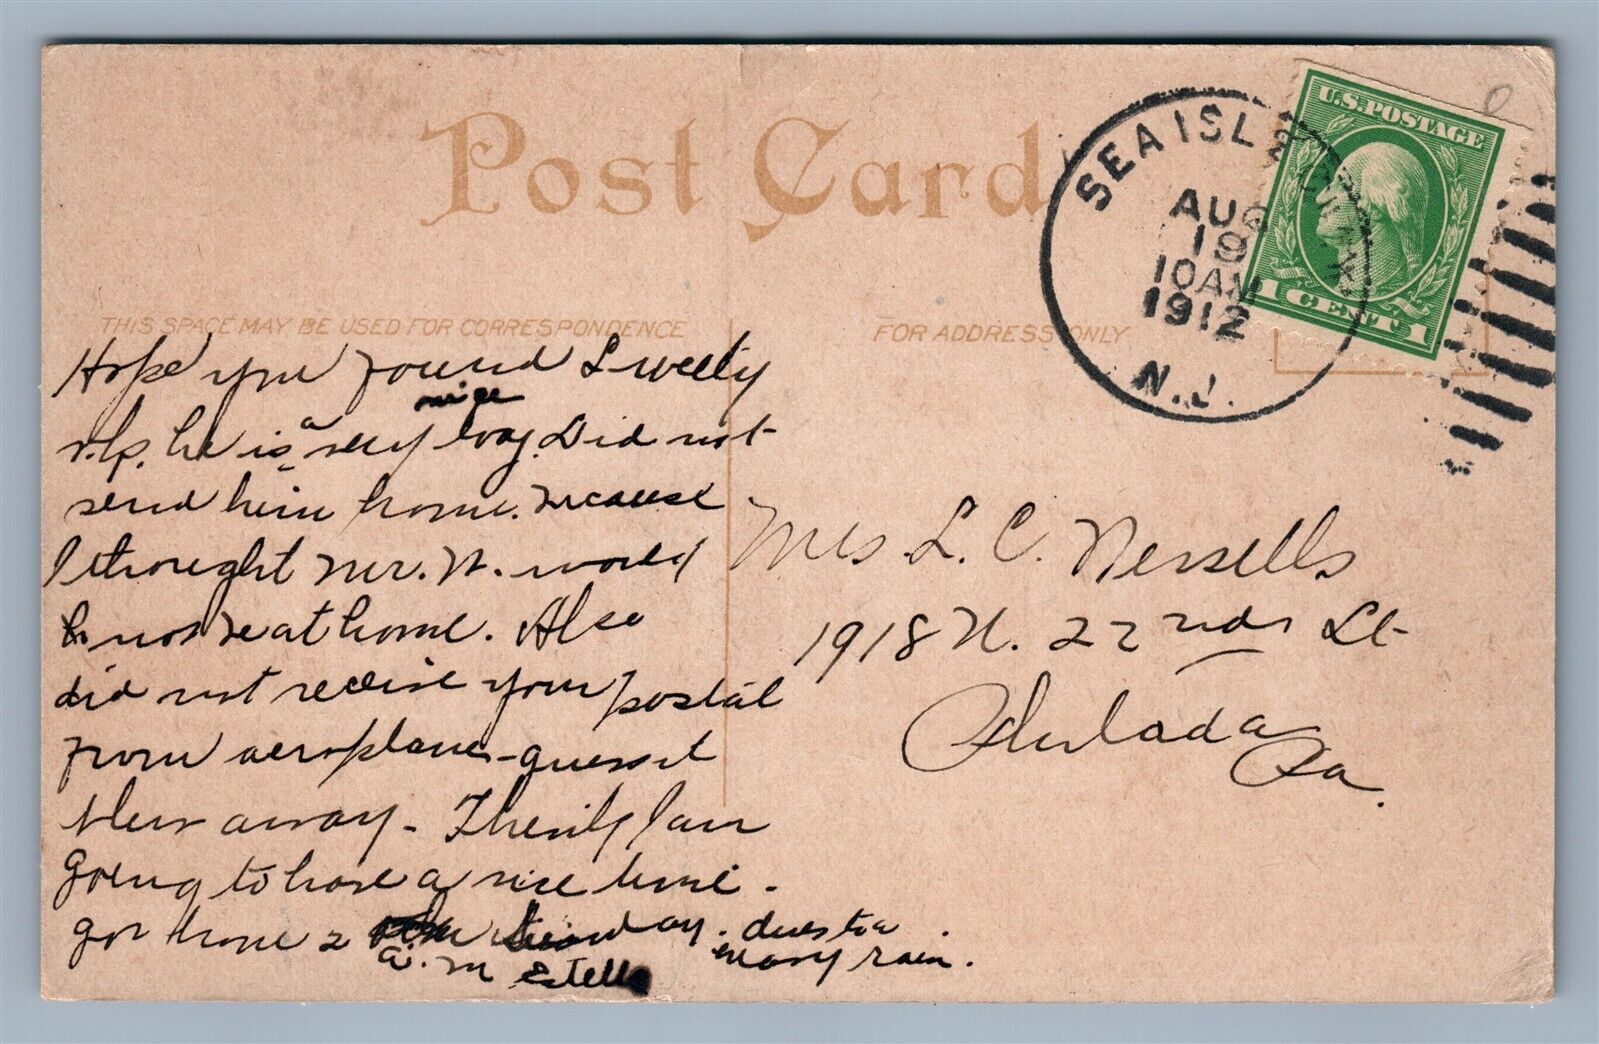 Post Card
SEA ISLE CITY
AUG
19
10AM
1912
N.J.
U.S. POSTAGE
1 CENT 1
THIS SPACE MAY BE USED FOR CORRESPONDENCE
FOR ADDRESS ONLY
Hope you found Sweety
he is a very nice boy. Did not
send him home. because
I thought Mr. N. would
not be at home. Also
did not receive your postal
from aeroplane - guess it
blew away - I am
going to have a nice time -
got home 2 Sunday. due to a
a.m Estella heavy rain.
Mrs. L. C. Nessells
1918 N. 22nd St
Philada
Pa.